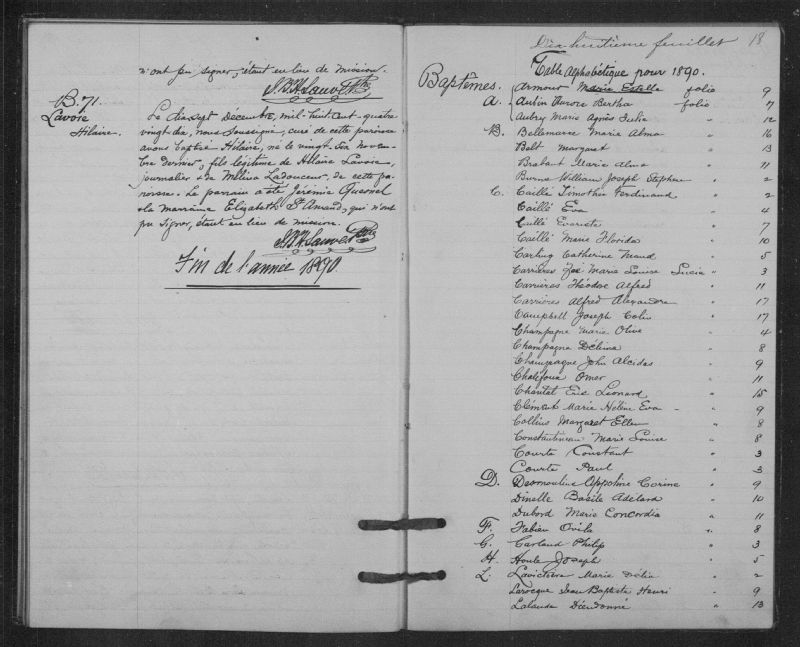 n'ont pu signer, étant en lieu de mission.
J.B.H. Sauvé Ptre
B. 71.
Lavoie
Hilaire.
Le dix-sept Décembre, mil-huit-cent-quatre
vingt-dix, nous soussigné, curé de cette paroisse
avons baptisé Hilaire, né le vingt-six novem-
bre dernier, fils légitime de Hilaire Lavoie,
journalier & de Mélina Ladouceur, de cette pa-
roisse. Le parrain a été Jérémie Quesnel
& la marraine Elizabeth St Amand, qui n'ont
pu signer, étant en lieu de mission.
J.B.H. Sauvé Ptre
Fin de l'année 1890.
Dix huitième feuillet 18
Table Alphabétique pour 1890.
Baptêmes. Armour Marie Estelle folio 9
A. Aubin Aurore Bertha folio 7
Aubry Marie Agnès Julie " 12
B. Bellemare Marie Alma " 16
Bolt Margaret " 13
Brabant Marie Alma " 11
Burns William Joseph Stephen " 2
C. Caillé Timothée Ferdinand " 2
Caillé Eva " 4
Caillé Evariste " 7
Caillé Marie Florida " 10
Carling Catherine Maud " 5
Carrières Marie Louise Lucia " 3
Carrières Théodore Alfred " 11
Carrières Alfred Alexandre " 17
Campbell Joseph Colin " 17
Champagne Marie Olive " 4
Champagne Délima " 8
Champagne John Alcidas " 9
Chalifoux Omer " 11
Chantal Eric Léonard " 15
Clément Marie Hélène Eva " 9
Collins Margaret Ellen " 8
Constantineau Marie Louise " 8
Courte Constant " 3
Courte Paul " 3
D. Desmoulins Appoline Corine " 9
Dinelle Basile Adélard " 10
Dubord Marie Concordia " 11
F. Fabien Ovila " 8
G. Garland Philip " 3
H. Houle Joseph " 5
L. Lavictoire Marie Délia " 2
Larocque Jean Baptiste Henri " 9
Lalande Dieudonné " 13